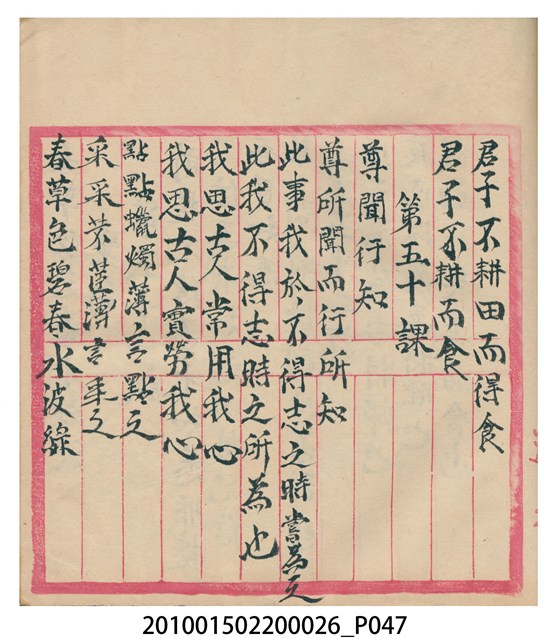 君子不耕田而得食
君子不耕而食
第五十課
尊聞行知
尊所聞而行所知
此事我於不得志之時嘗為之
此我不得志時之所為也
我思古人常用我心
我思古人實勞我心
點點蠟燭薄言點之
采采芣苢薄言采之
春草色碧春水波綠
201001502200026_P047